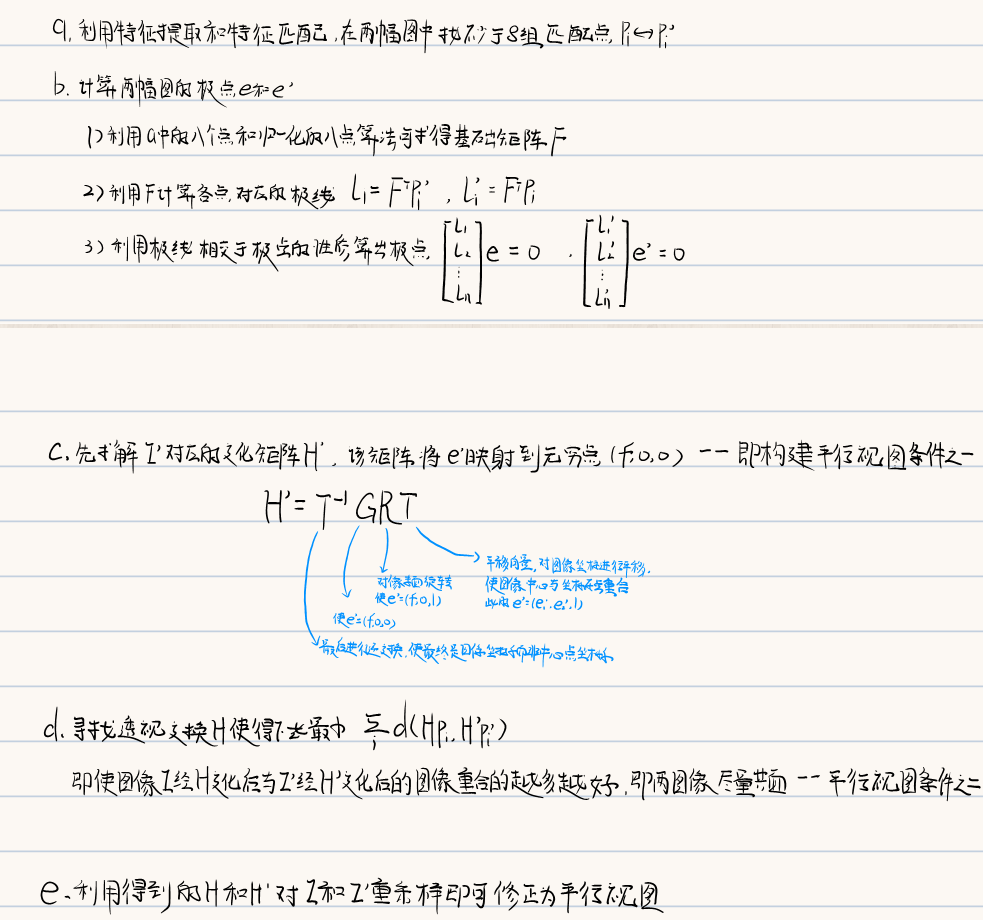 a. 利用特征提取和特征匹配, 在两幅图中找不少于8组匹配点 Pi↔Pi'
b. 计算两幅图的极点e和e'
1) 利用a中的八个点和归一化的八点算法可求得基础矩阵F
2) 利用F计算各点对应的极线 Li = FᵀPi' , Li' = FᵀPi
3) 利用极线相交于极点的性质算出极点 [L1 L2 ⋮ Ln] e = 0 , [L1' L2' ⋮ Ln'] e' = 0
c. 先求解I'对应的变化矩阵H', 该矩阵将e'映射到无穷点(f,0,0) -- 即构建平行视图条件之一
H' = T⁻¹GRT
平移向量, 对图像坐标进行平移,
使图像中心与坐标
此时 e'=(e1',e2',1)
对像素面旋转
使e'=(f,0,1)
使e'=(f,0,0)
最后进行逆变换, 使最终是图像坐标而非中心点坐标
d. 寻找透视变换H使得下式最小 Σi d(HPi, H'Pi')
即使图像I经H变化后与I'经H'变化后的图像重合的越多越好, 即两图像尽量共面 -- 平行视图条件之二
e. 利用得到的H和H'对I和I'重采样即可修正为平行视图